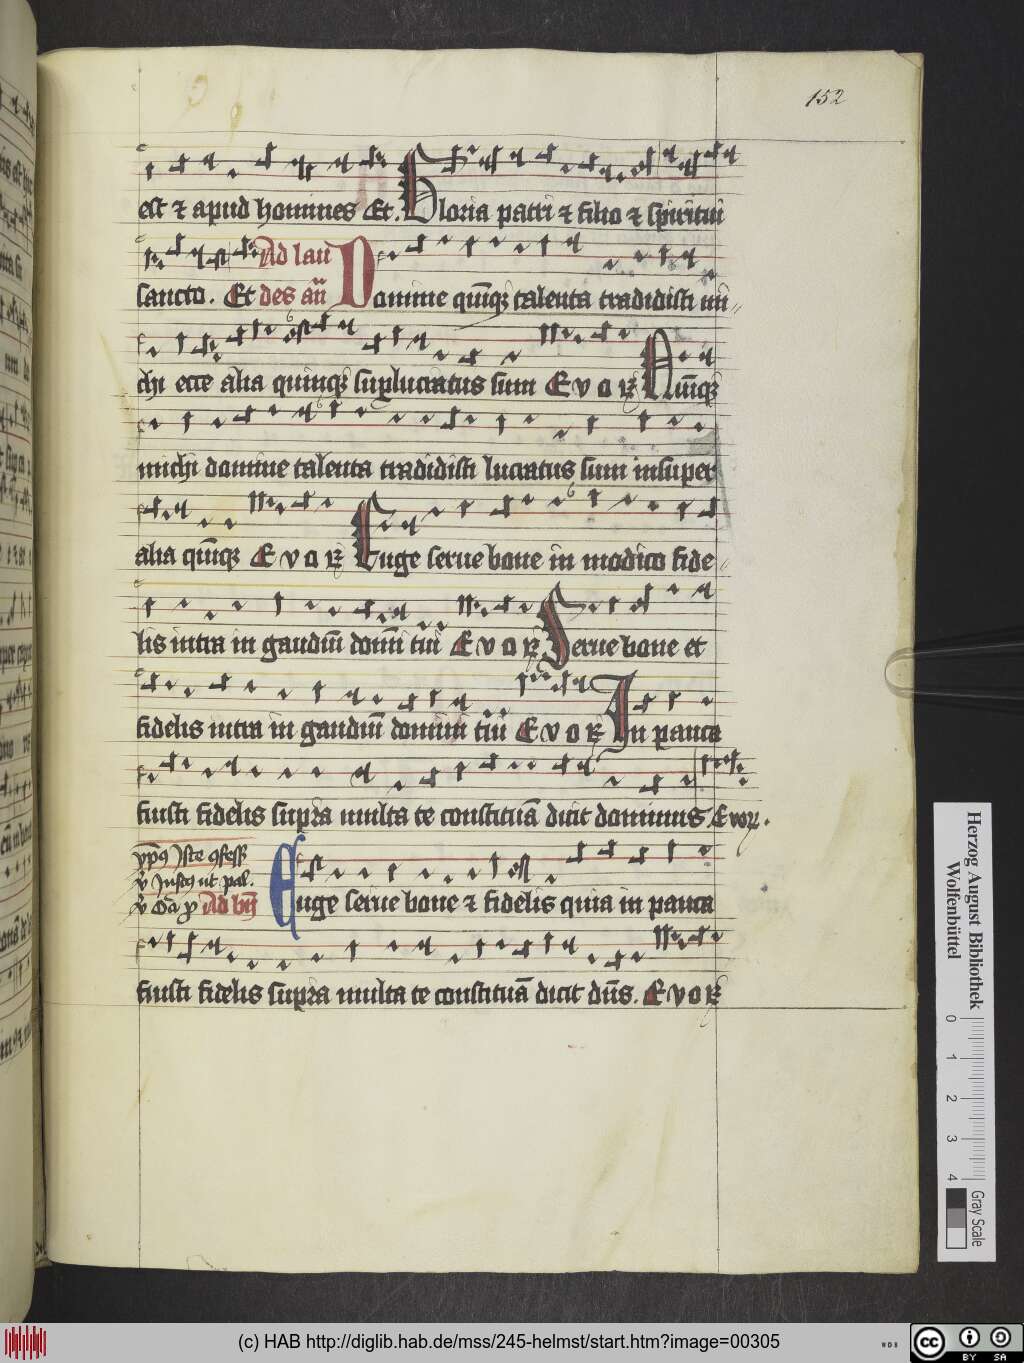 152
est ⁊ apud homines Et. Gloria patri ⁊ filio ⁊ spiritui
Ad lau
sancto. Et des añ Domine quīqꝫ talenta tradidisti mi
chi ecce alia quinqꝫ suꝑlucratus sum E v o ꝝ Quīqꝫ
michi domine talenta tradidisti lucratus sum insuper
alia quīqꝫ E v o ꝝ Euge serue bone in modico fide
lis intra in gaudiū dom̄i tui E v o ꝝ Serue bone et
fidelis intra in gaudiū domini tui E v o ꝝ In pauca
fuisti fidelis supra multa te constituā dicit dominus E voꝝ.
Iste
ut pal.
Ad
Euge serue bone ⁊ fidelis quia in pauca
fuisti fidelis supra multa te constituā dicit dn̄s. E v o ꝝ
Herzog August Bibliothek
Wolfenbüttel
0 1 2 3 4
Gray Scale
(c) HAB http://diglib.hab.de/mss/245-helmst/start.htm?image=00305
WDB
cc BY SA